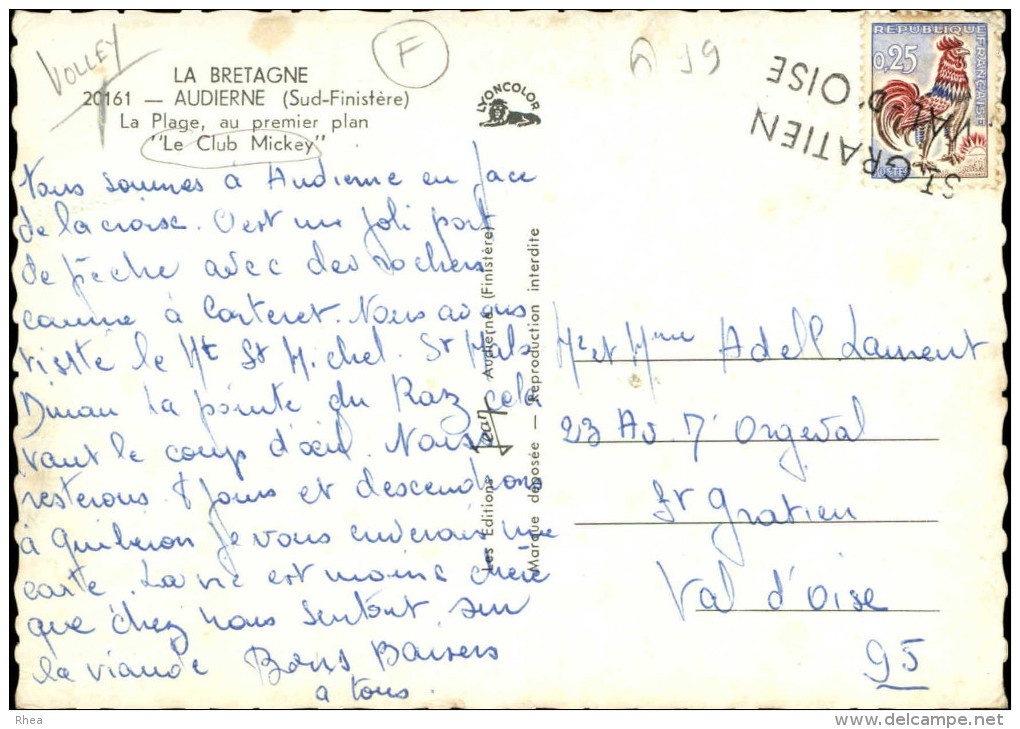 VOLLEY
F
29
LA BRETAGNE
20161 — AUDIERNE (Sud-Finistère)
La Plage, au premier plan
"Le Club Mickey"
LYONCOLOR
REPUBLIQUE FRANÇAISE
0,25
POSTES
ST GRATIEN
VAL-D'OISE
Nous sommes à Audierne en face
de la croise. C'est un joli port
de pêche avec des rochers
comme à Carteret. Nous avons
visité le Mt St Michel. St Malo
Dinan la pointe du Raz cela
vaut le coup d'œil. Nous
resterons 8 jours et descendrons
à Quiberon je vous enverais une
carte. La vie est moins chère
que chez nous surtout sur
la viande Bons Baisers
a tous.
Les Editions Jean Audierne (Finistère)
Marque déposée — Reproduction interdite
Mr et Mme Adell Laurent
23 Av. d'Orgeval
St Gratien
Val d'Oise
95
Rhea
delcampe.net